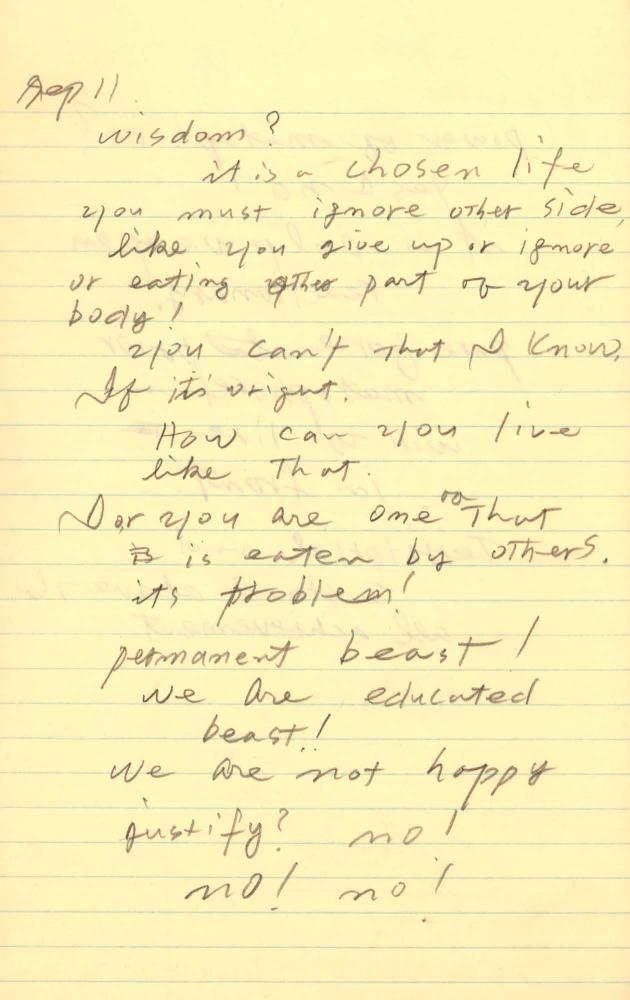 Sep 11.
wisdom?
it is a chosen life
you must ignore other side,
like you give up or ignore
or eating other part of your
body!
you can't that I know,
If it's right.
How can you live
like that.
I or you are one that
is eaten by others.
its problem!
permanent beast!
we are educated
beast!
we are not happy
justify? no!
no! no!